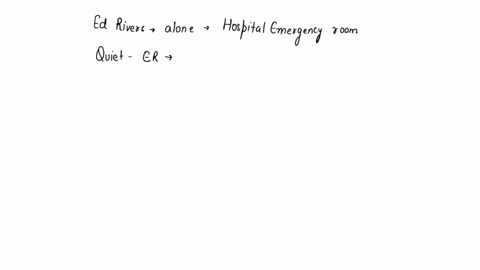 Ed Rivers → alone → Hospital Emergency room
Quiet - ER →